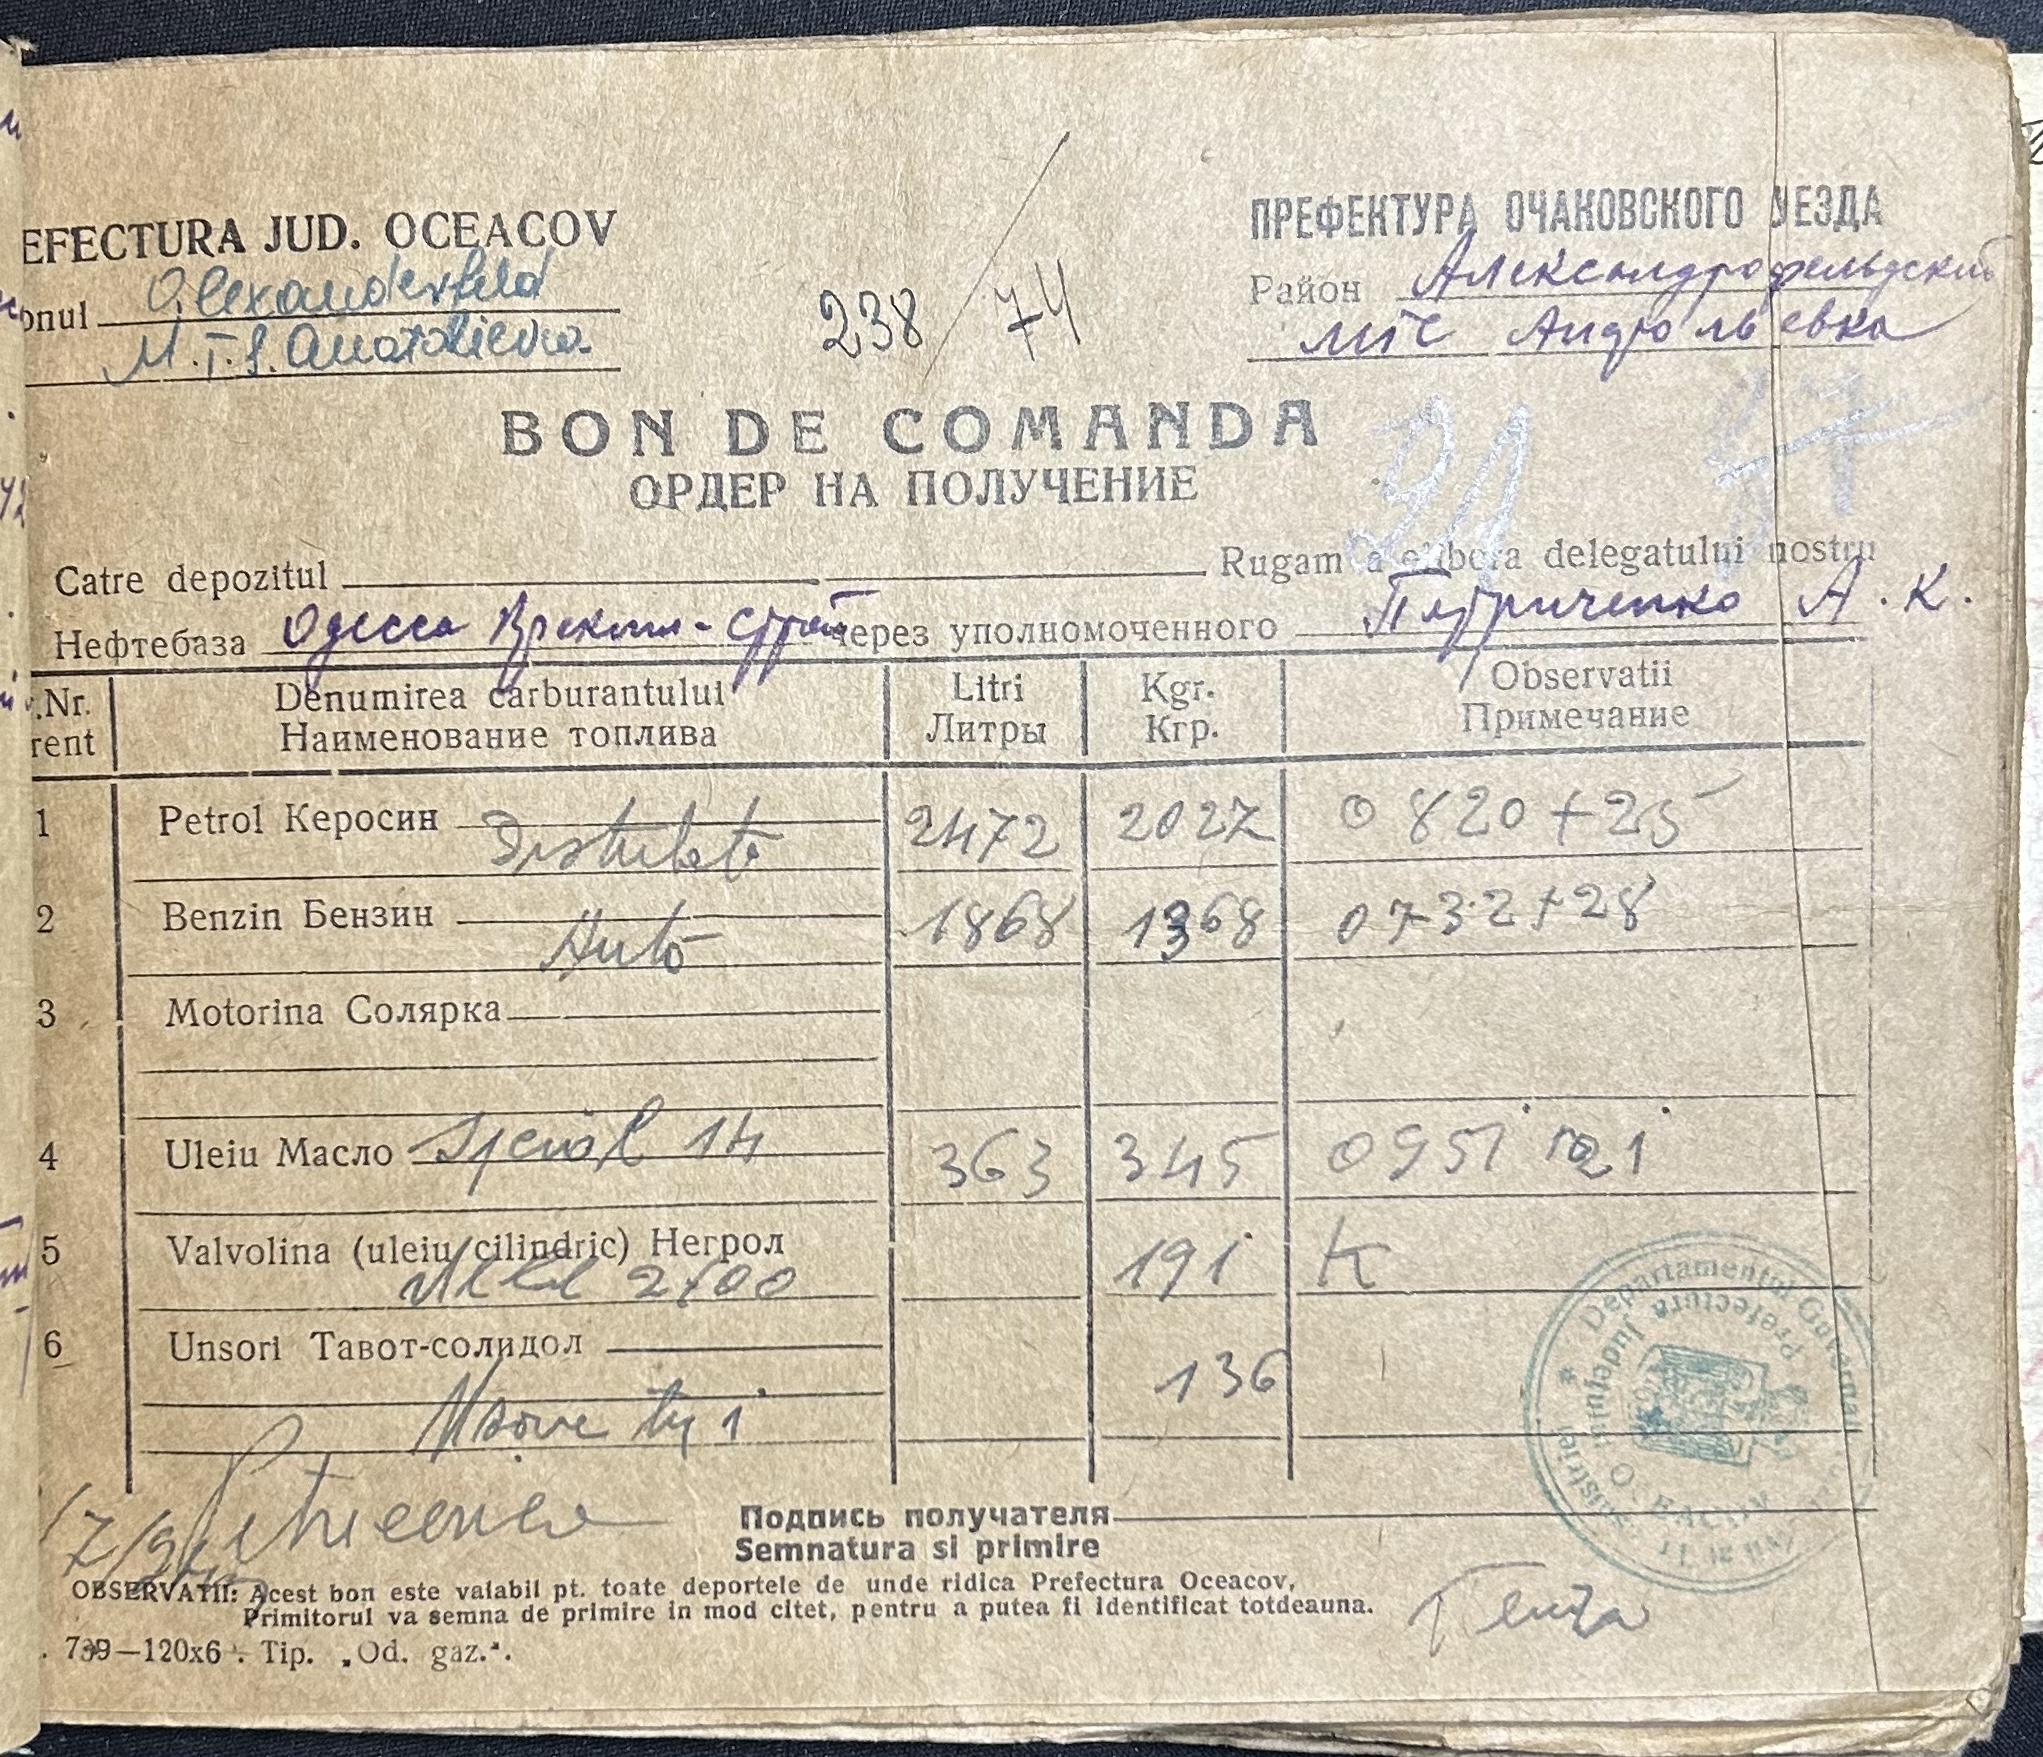 EFECTURA JUD. OCEACOV
onul Alexanderfeld
M.T.S.
238 / 74
ПРЕФЕКТУРА ОЧАКОВСКОГО УЕЗДА
Район Александрофельдский
мтс
BON DE COMANDA
ОРДЕР НА ПОЛУЧЕНИЕ
Catre depozitul Rugam a elibera delegatului nostru
Нефтебаза Одесса через уполномоченного Петриченко А. К.
.Nr. Denumirea carburantului Litri Kgr. Observatii
rent Наименование топлива Литры Кгр. Примечание
1 Petrol Керосин 2472 2027 0820+25
Distilato
2 Benzin Бензин 1868 1368 0732+28
Auto
3 Motorina Солярка
4 Uleiu Масло Special 14 363 345 0951 21
5 Valvolina (uleiu cilindric) Негрол 191 K
6 Unsori Тавот-солидол 136
Подпись получателя
Semnatura si primire
OBSERVATII: Acest bon este valabil pt. toate deportele de unde ridica Prefectura Oceacov,
Primitorul va semna de primire in mod citet, pentru a putea fi identificat totdeauna.
739—120x6. Tip. „Od. gaz.".
Prefectura Judetului